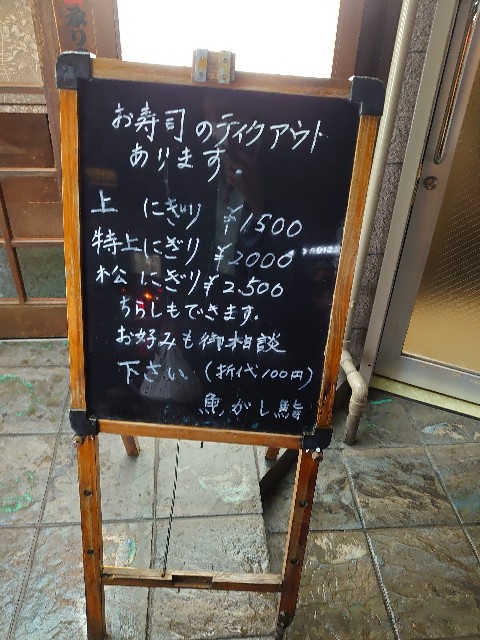 お寿司のテイクアウト
あります.
上 にぎり ¥1500
特上にぎり ¥2000
松 にぎり ¥2.500
ちらしもできます.
お好みも御相談
下さい (折代100円)
魚がし鮨